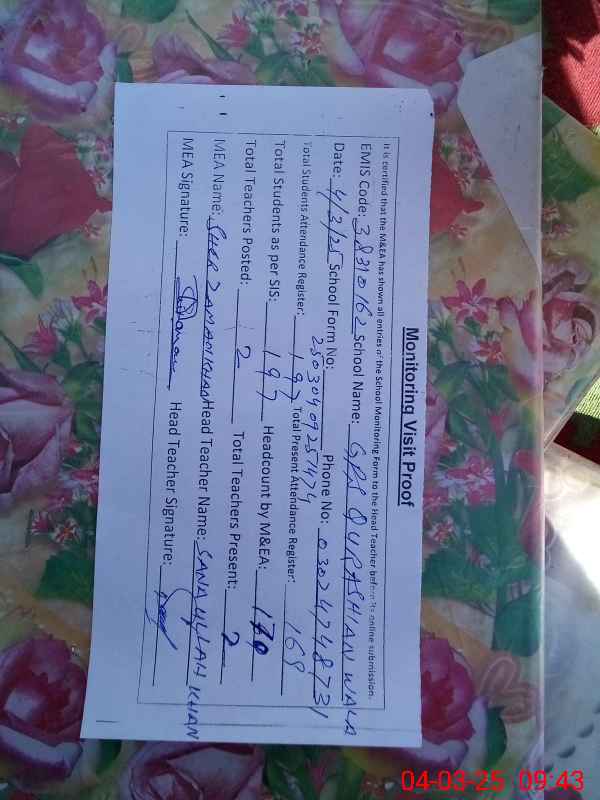 Monitoring Visit Proof
It is certified that the M&EA has shown all entries of the School Monitoring Form to the Head Teacher before its online submission.
EMIS Code: 38310162 School Name: GPS QURASHIAN WALA
Date: 4/3/25 School Form No: 25030409251474 Phone No: 03024748731
Total Students Attendance Register: 197 Total Present Attendance Register: 169
Total Students as per SIS: 197 Headcount by M&EA:
Total Teachers Posted: 2 Total Teachers Present: 2
MEA Name: SHER ZAMAN KHAN Head Teacher Name: SANAULLAH KHAN
MEA Signature: Head Teacher Signature:
04-03-25 09:43